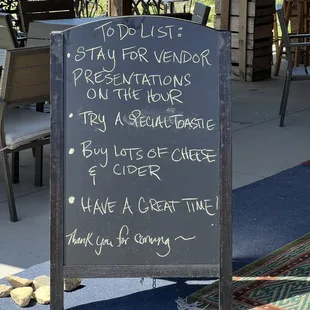 TO DO LIST:
• STAY FOR VENDOR
PRESENTATIONS
ON THE HOUR
• TRY A SPECIAL TOASTIE
• BUY LOTS OF CHEESE
& CIDER
• HAVE A GREAT TIME!
Thank you for coming ~